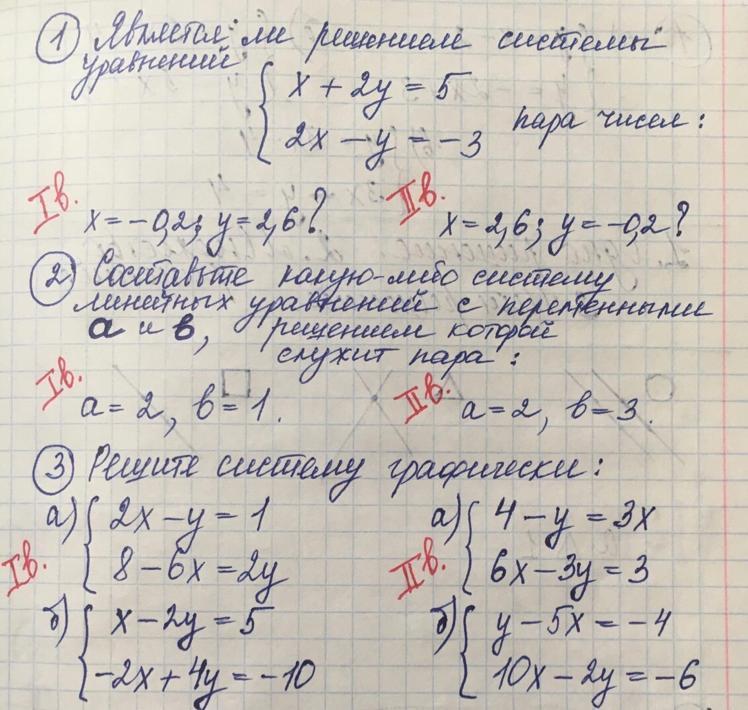 1 Является ли решением системы
уравнений
x + 2y = 5
2x − y = −3
пара чисел:
I в. x = −0,2; y = 2,6?
II в. x = 2,6; y = −0,2?
2 Составьте какую-либо систему
линейных уравнений с переменными
a и b, решением которой
служит пара:
I в. a = 2, b = 1.
II в. a = 2, b = 3.
3 Решите систему графически:
I в.
а) 2x − y = 1
8 − 6x = 2y
б) x − 2y = 5
−2x + 4y = −10
II в.
а) 4 − y = 3x
6x − 3y = 3
б) y − 5x = −4
10x − 2y = −6